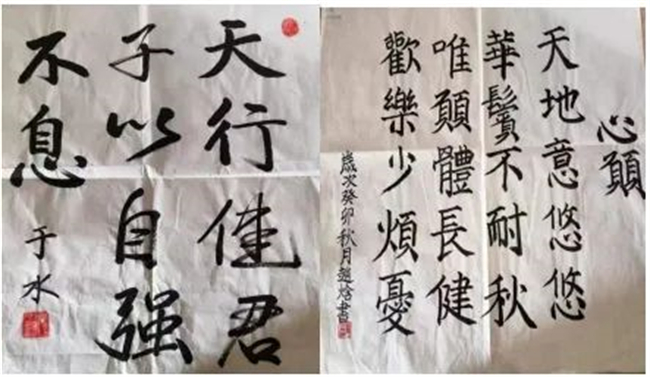 天行健君
子以自强
不息
于水
心願
天地意悠悠
華鬢不耐秋
唯願體長健
歡樂少煩憂
歲次癸卯秋月趙書